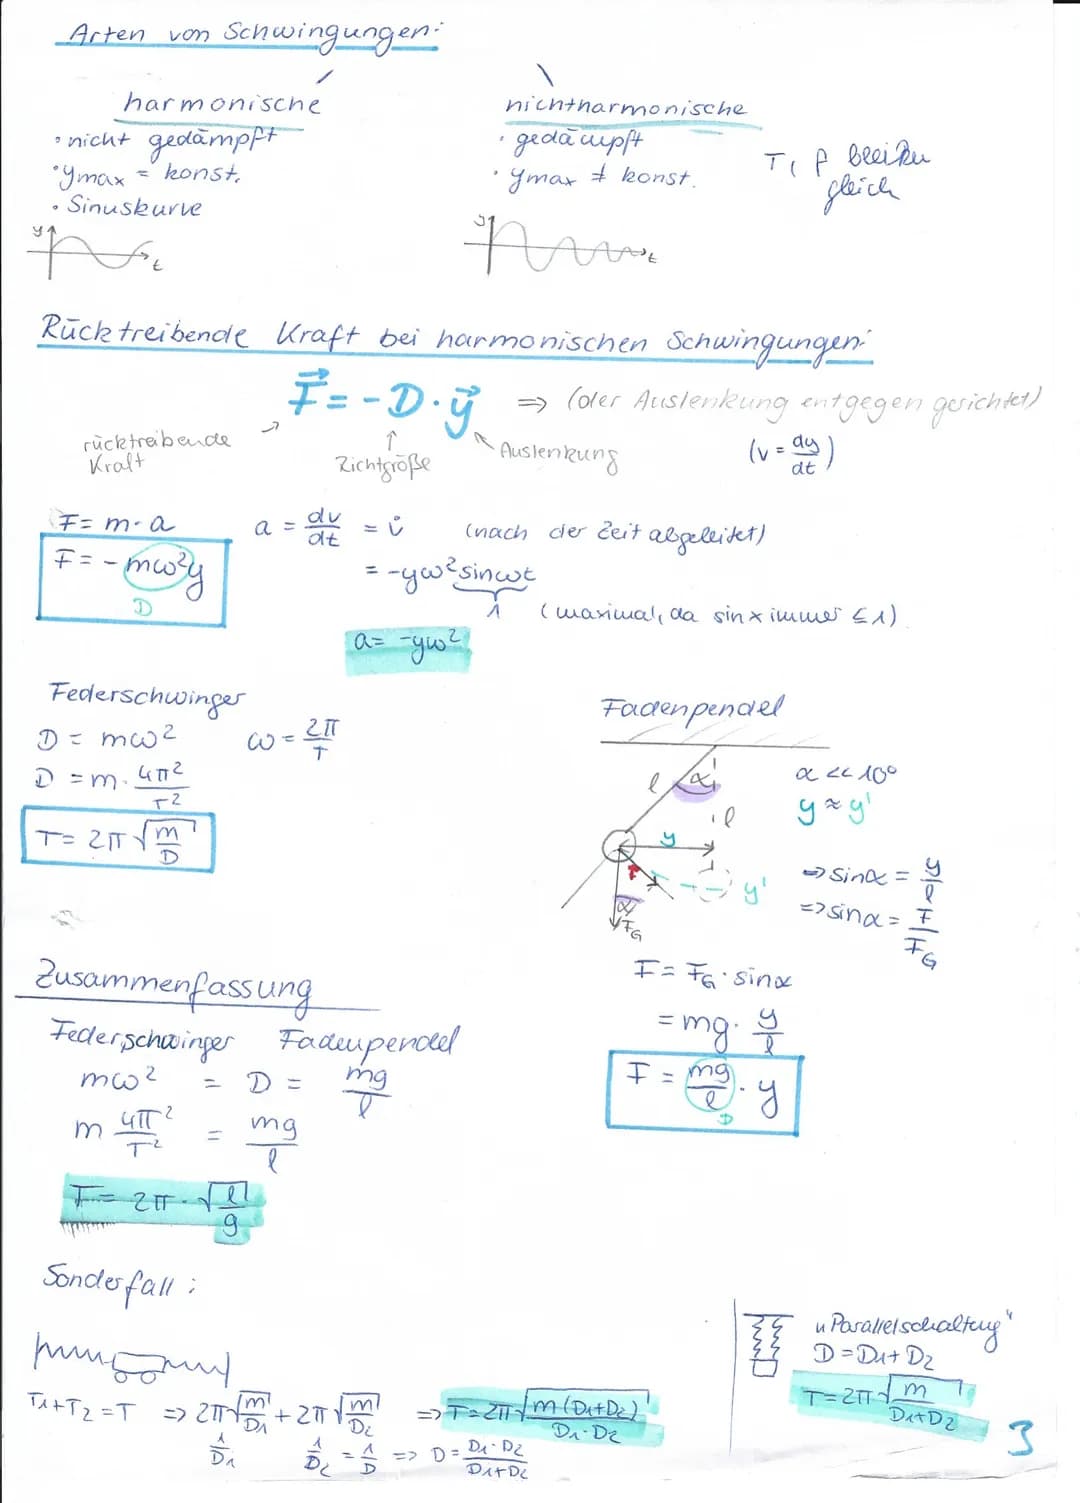 Arten von Schwingungen:
harmonische
• nicht gedämpft
• ymax = konst.
• Sinuskurve
y
t
nichtharmonische
• gedämpft
• ymax ≠ konst.
T, f bleiben
gleich
y
t
Rücktreibende Kraft bei harmonischen Schwingungen:
F = -D · y ⇒ (der Auslenkung entgegen gerichtet)
rücktreibende
Kraft
Richtgröße
Auslenkung
(v = dy/dt)
F = m · a
F = - mω²y
D
a = dv/dt = v̇ (nach der Zeit abgeleitet)
= -yω² sin ωt
1 (maximal, da sin x immer ≤ 1)
a = -yω²
Federschwinger
D = mω² ω = 2π/T
D = m · 4π²/T²
T = 2π √(m/D)
Fadenpendel
l α
l
y
F
y'
α
FG
α << 10°
y ≈ y'
⇒ sinα = y/l
⇒ sinα = F/FG
F = FG · sinα
= mg · y/l
F = mg/l · y
D
Zusammenfassung
Federschwinger Fadenpendel
mω² = D = mg/l
m 4π²/T² = mg/l
T = 2π · √(l/g)
Sonderfall:
T1 + T2 = T ⇒ 2π√(m/D1) + 2π√(m/D2) ⇒ T = 2π√(m(D1+D2)/D1·D2)
1/D1 1/D2 = 1/D ⇒ D = D1·D2/D1+D2
„Parallelschaltung"
D = D1 + D2
T = 2π √(m/D1+D2)
3